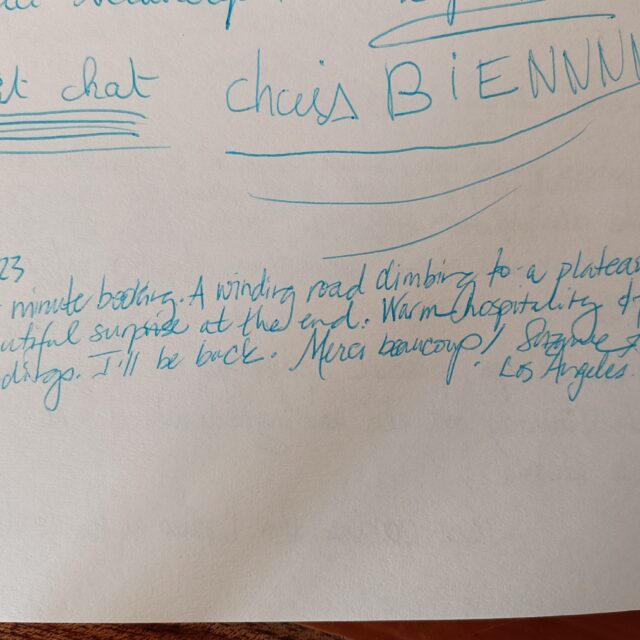 chat
chais BiENNNN
23
minute booking. A winding road climbing to a plateau
surprise at the end. Warm hospitality &
I'll be back. Merci beaucoup! Suzanne
Los Angeles.